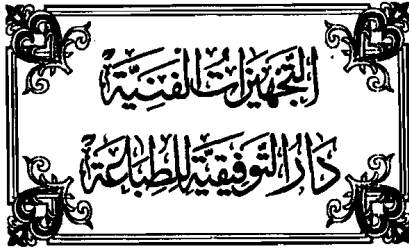 التَّجهِيزَاتُ الفَنِّيَّة
دَارُ التَّوفِيقِيَّة لِلطِّبَاعَة